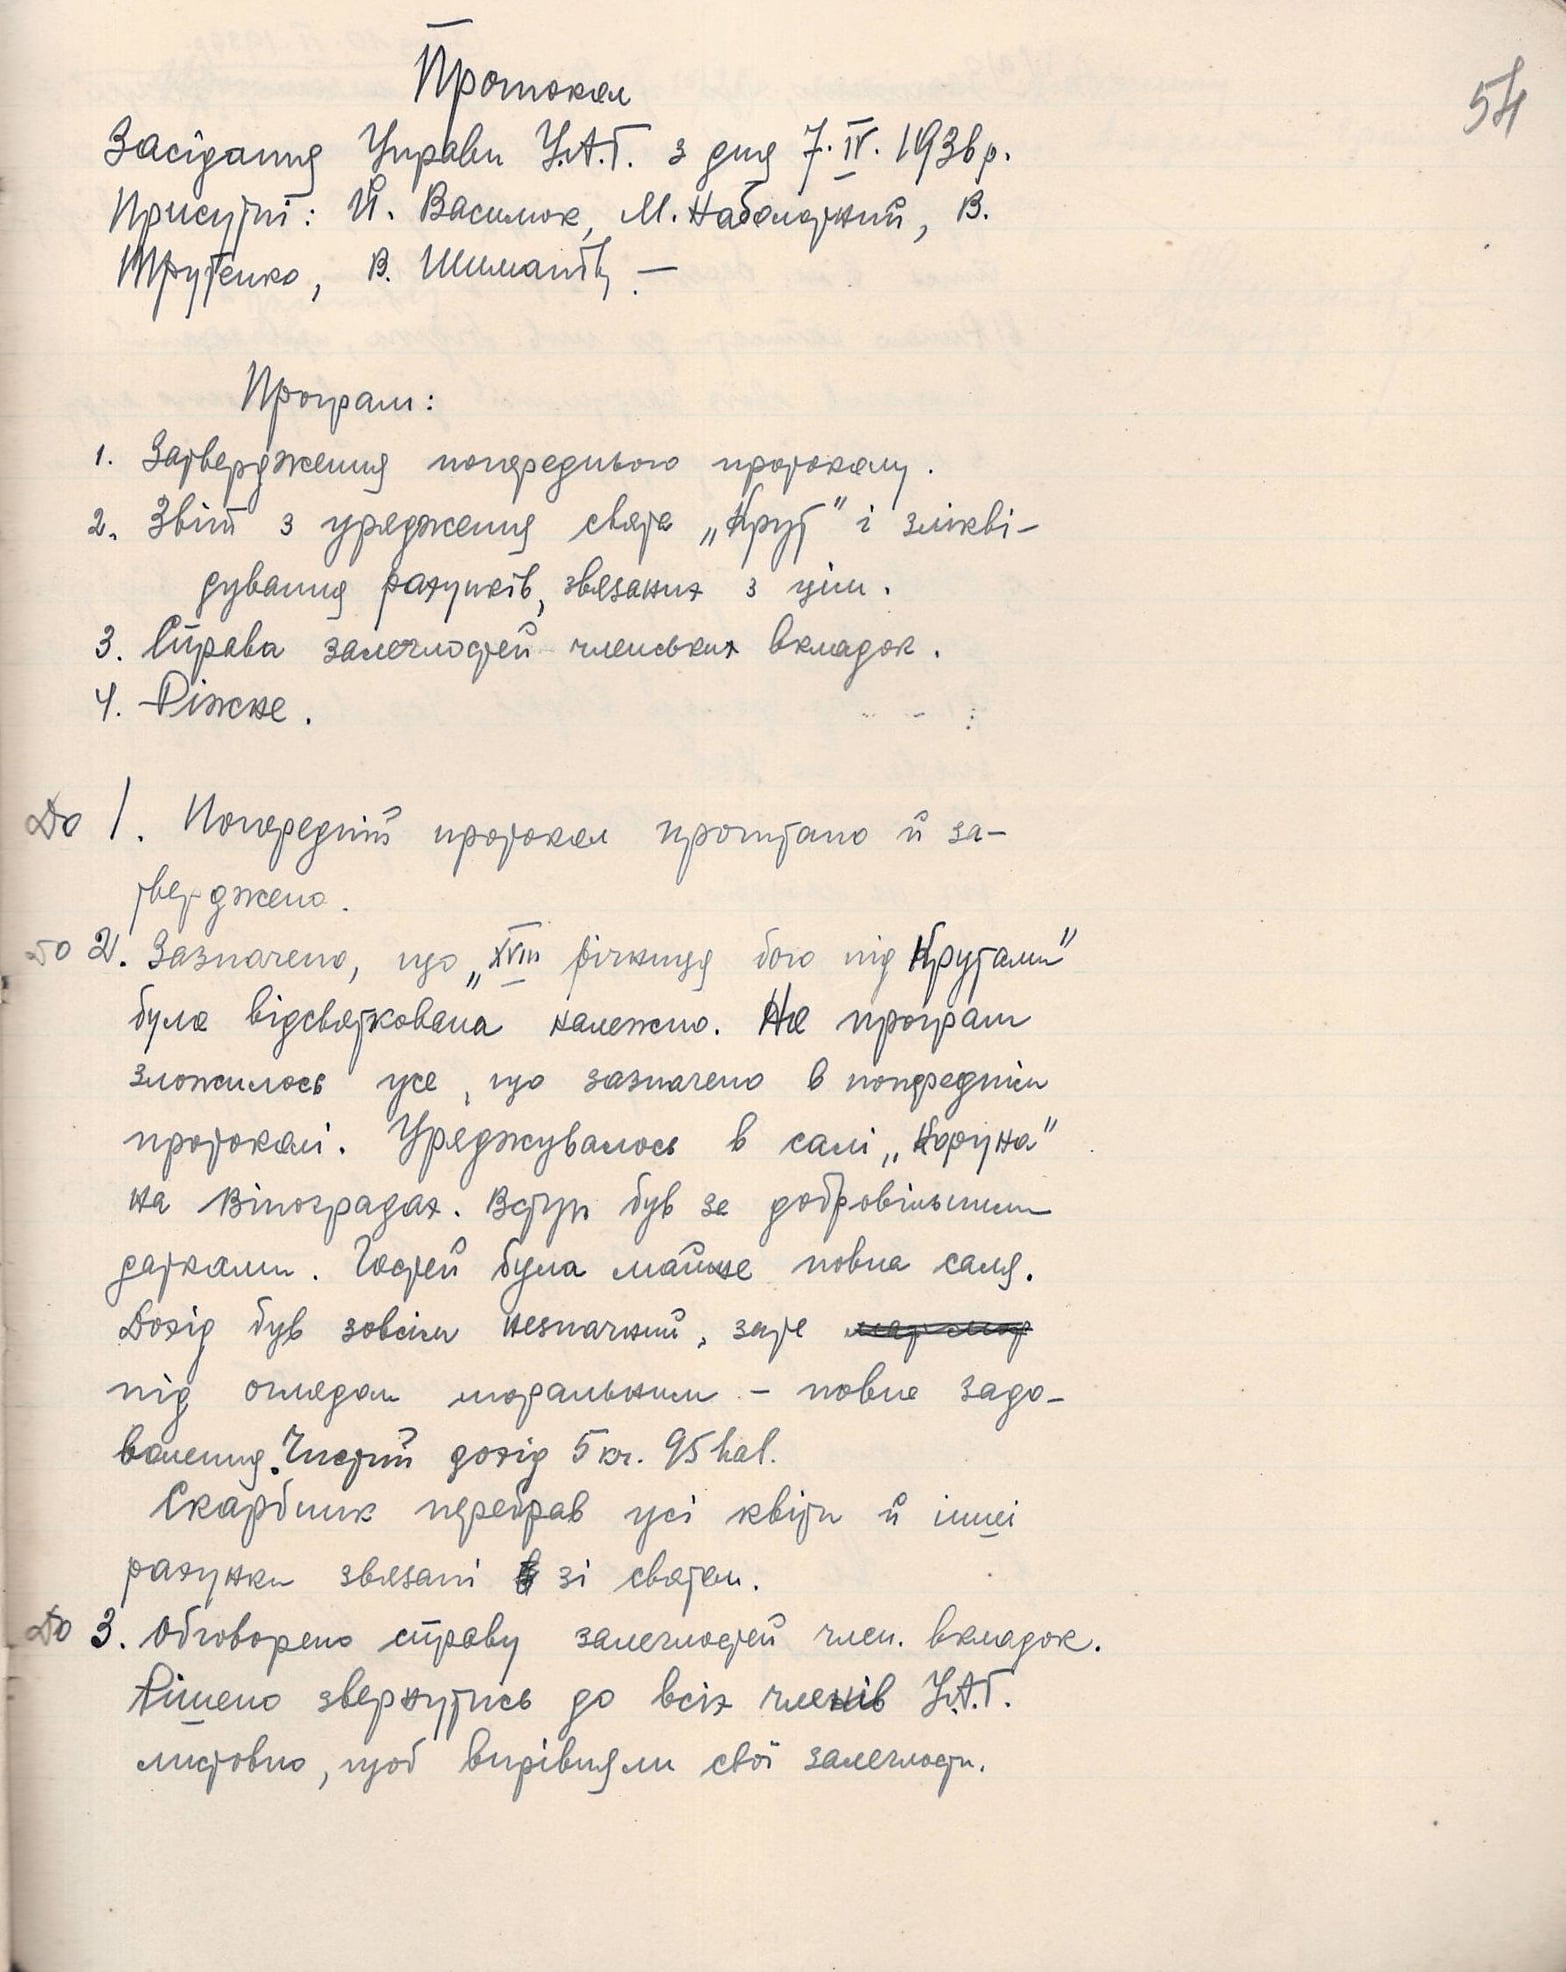 54
Протокол
Засідання Управи У.А.Г. з дня 7. IV. 1936 р.
Присутні: Й. Василюк, М. Наболотний, В.
Трутенко, В. Шиманів. —
Програм:
1. Затвердження попереднього протоколу.
2. Звіт з урядження свята „Крут" і злікві-
дування рахунків, звязаних з цім.
3. Справа залеглостей членських вкладок.
4. Ріжне.
До 1. Попередній протокол прочитано й за-
тверджено.
До 2. Зазначено, що „XVIII річниця бою під Крутами"
була відсвяткована належно. На програм
зложилось усе, що зазначено в попереднім
протоколі. Уряджувалось в салі „Коруна"
на Виноградах. Вступ був за добровільними
датками. Гостей була майже повна саля.
Дохід був зовсім незначний, зате
під оглядом моральним – повне задо-
волення. Чистий дохід 5 кч. 95 hal.
Скарбник перебрав усі квіти й инші
рахунки звязані зі святом.
До 3. Обговорено справу залеглостей член. вкладок.
Рішено звернутись до всіх членів У.А.Г.
листовно, щоб вирівняли свої залеглости.